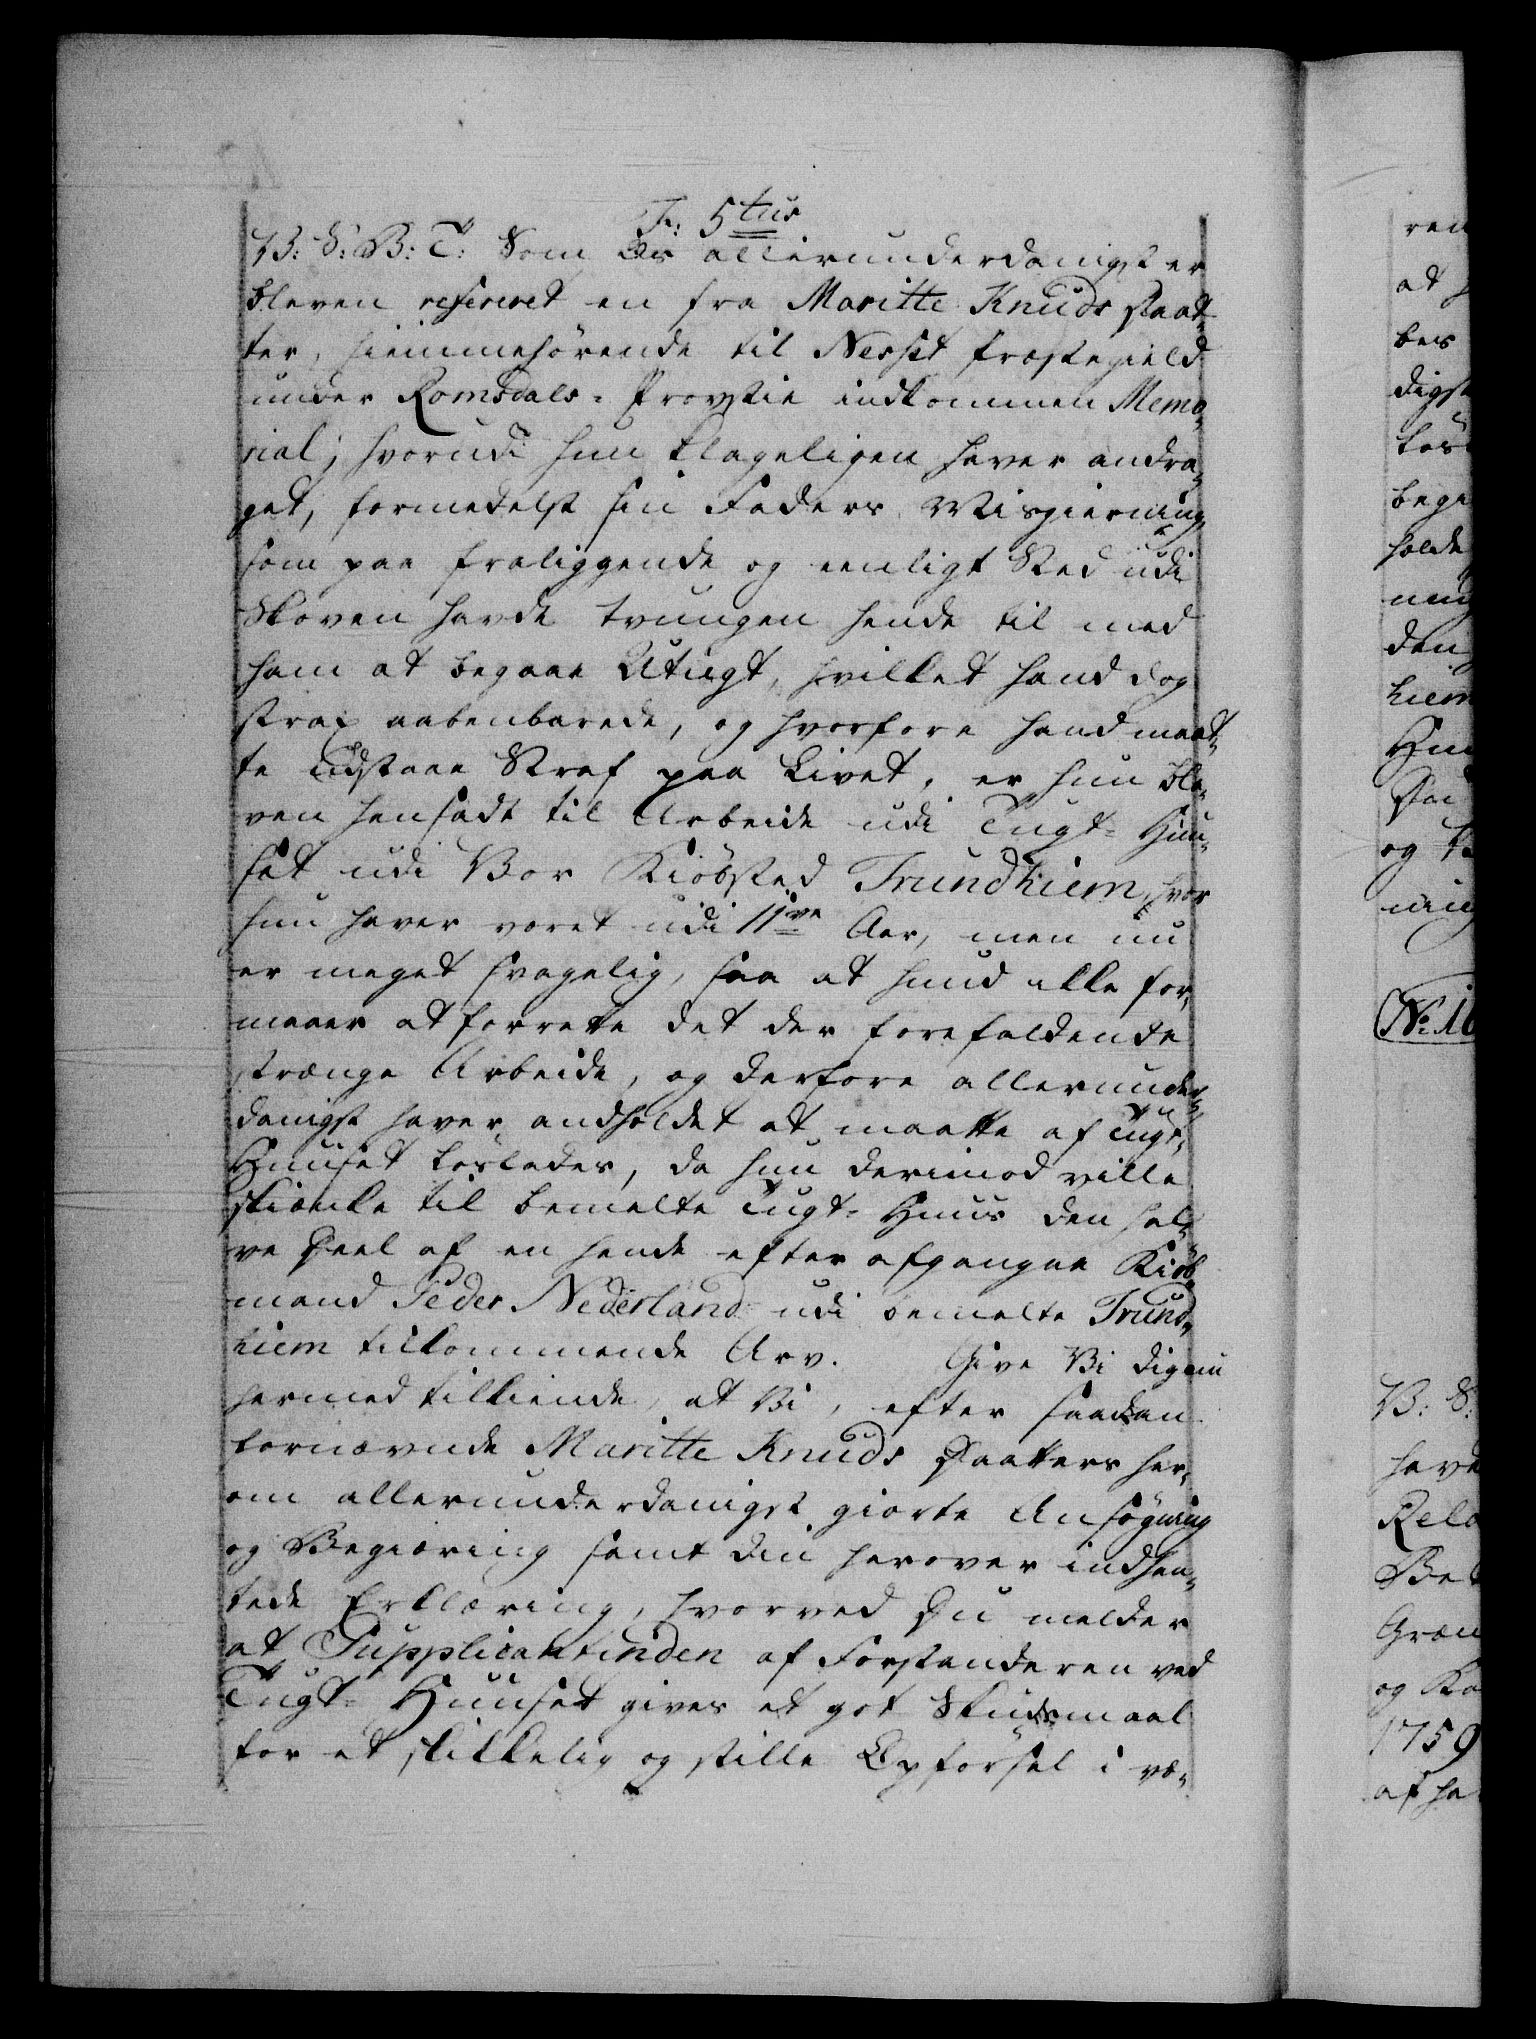 F: 5tus
V: S: B: T: Som Os allerunderdanigst er
bleven refereret en fra Maritte Knuds Daat-
ter, hiemmehörende til Nesset Præstegield
under Romsdals-Provstie indkommen Memo-
rial; hvorudi hun klageligen haver andra-
get, formedelst sin Faders Misgierning
som paa fraliggende og eenligt Sted udi
Skoven havde tvungen hende til med
ham at begaae Utugt, hvilket hand dog
strax aabenbarede, og hvorfore hand maat-
te udstaae Straf paa Livet, er hun ble-
ven hensadt til Arbeide udi Tugt-Huu-
set udi Vor Kiöbsted Trundhiem, hvor
hun haver været udi 11ve Aar, men nu
er meget svagelig, saa at hund ikke for-
maaer at forrette det der forefaldende
strænge Arbeide, og derfore allerunder-
danigst haver andholdet at maatte af Tugt-
Huuset løslades, da hun derimod ville
skienke til bemelte Tugt-Huus den hal-
ve Deel af en hende efter afgangne Kiöb-
mand Peder Nederland udi bemelte Trund-
hiem tilkommende Arv. Give Vi dig nu
hermed tilkiende, at Vi, efter saadan
fornævnde Maritte Knuds Daatters her-
om allerunderdanigst giorte Ansögning
og Begiæring samt din herover indhen-
tede Erklæring, hvorved Du melder
at Supplicantinden af Forstanderen ved
Tugt-Huuset gives et got Skudsmaal
for et skikkelig og stille Opförsel i væ-
ren
at
bes
digst
begi
holde
den
hiem
og
No. 16
V: S:
have
Rela
Græn
og Ko
1759
af ha